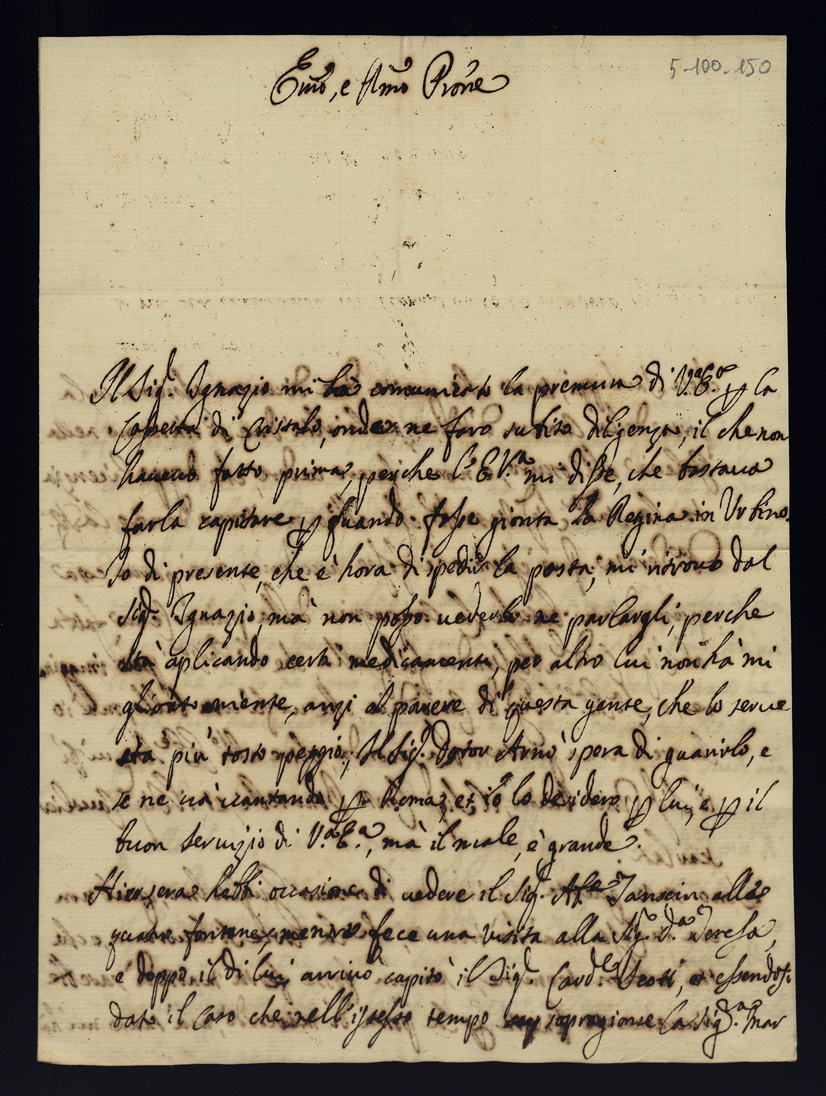 5-100-150
Emo, e Rmo Prone
Il Sig.r Ignazio mi ha comunicato la premura di V.a E.a p la
Coperta di Cristallo, onde ne farò subito diligenza, il che non
havevo fatto prima, perche l'E V.ra mi disse, che bastava
farla capitare p quando fosse gionta la Regina in Urbino.
Io di presente, che è hora di spedir la posta, mi ritrovo dal
Sig.r Ignazio, mà non posso vederlo ne parlargli, perche
stà aplicando certi medicamenti, per altro lui non hà mi
gliorato niente, anzi al parere di questa gente, che lo serve
sta più tosto peggio; Il Sig.r Dotor Arnò spera di guarirlo, e
se ne và vantando p Roma, et io lo desidero p lui, e p il
buon servizio di V.a E.a, mà il male, è grande.
Hiersera hebbi occasione di vedere il Sig.r Jansein alle
quatro fontane, mentre fece una visita alla Sig.ra D.a Teresa,
e doppo il di lui arrivo capitò il Sig.r Card.le Scotti, et essendosi
dato il Caso che nell'istesso tempo sopragionse la Sig.ra Mar